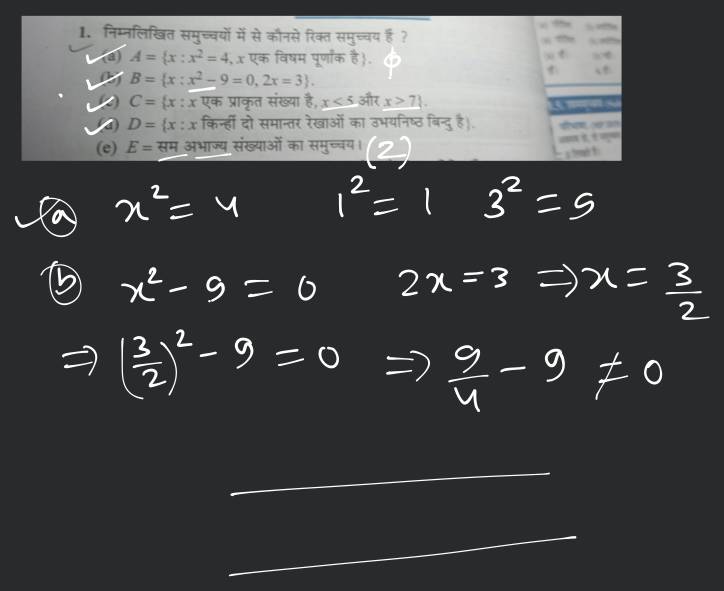 1. निम्नलिखित समुच्चयों में से कौनसे रिक्त समुच्चय हैं ?
(a) A = {x : x² = 4, x एक विषम पूर्णांक है}. ϕ
(b) B = {x : x² – 9 = 0, 2x = 3}.
(c) C = {x : x एक प्राकृत संख्या है, x < 5 और x > 7}.
(d) D = {x : x किन्हीं दो समान्तर रेखाओं का उभयनिष्ठ बिन्दु है}.
(e) E = सम अभाज्य संख्याओं का समुच्चय। (2)
(a) x² = 4 1² = 1 3² = 9
(b) x² - 9 = 0 2x = 3 ⇒ x = 3/2
⇒ (3/2)² - 9 = 0 ⇒ 9/4 - 9 ≠ 0